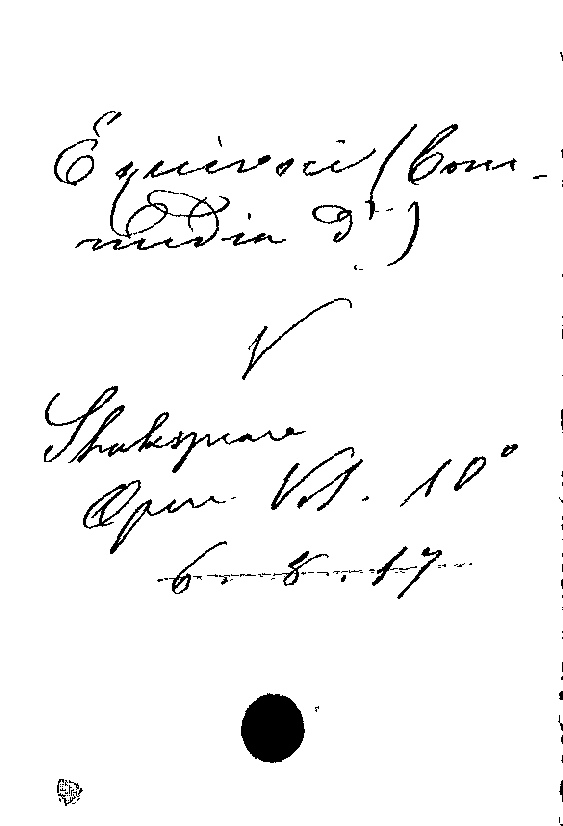 Equivoci (Com-
media d')
V
Shakespeare
Opere Vol. 10°
6. 8. 17